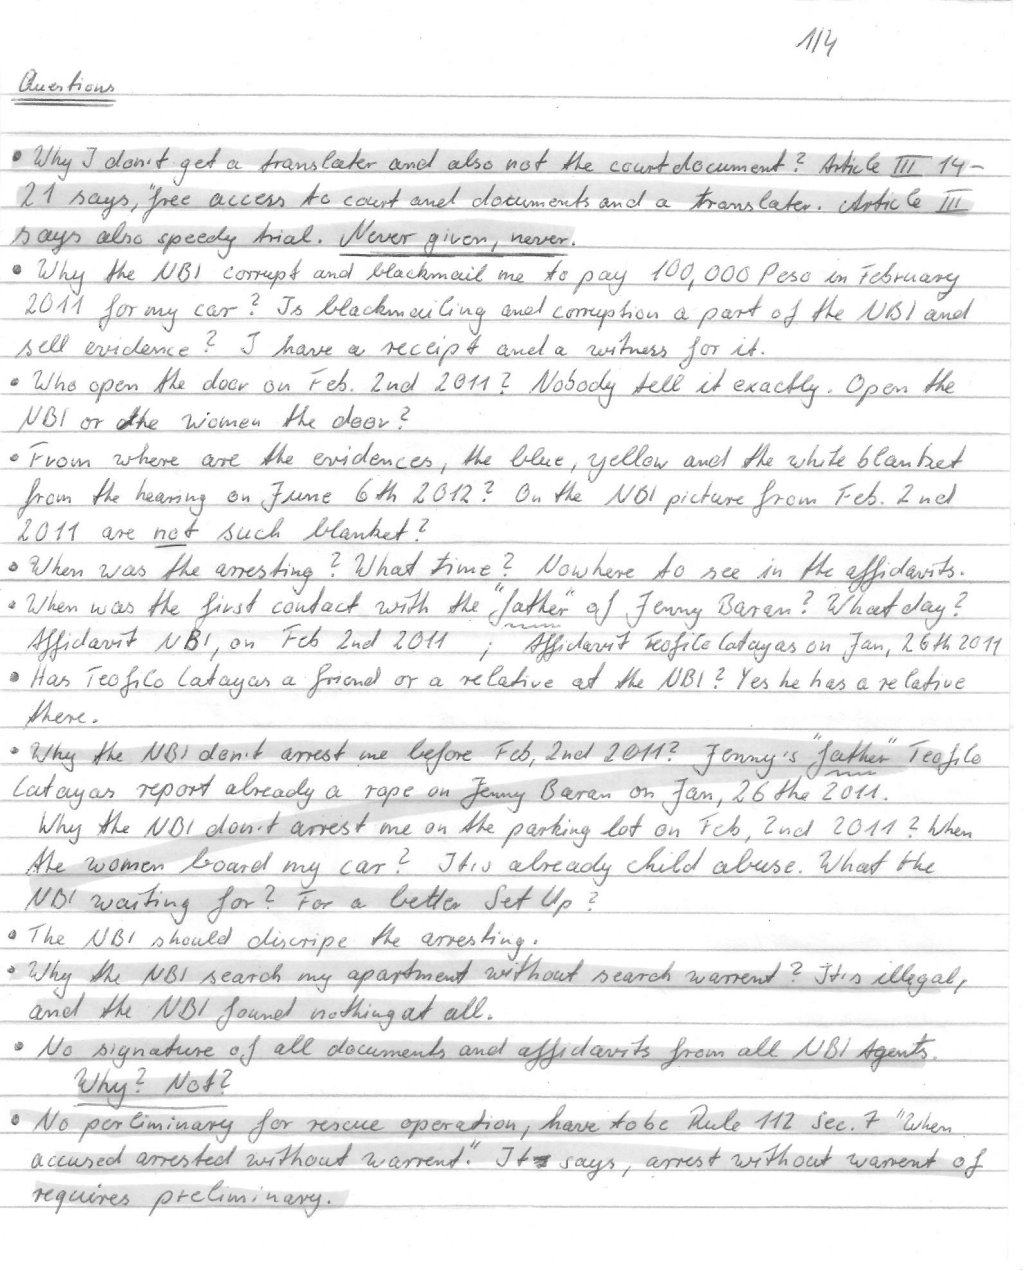 1/4
Questions
• Why I don't get a translater and also not the courtdocument? Article III 14-
21 says, "free access to court and documents and a translater. Article III
says also speedy trial. Never given, never.
• Why the NBI corrupt and blackmail me to pay 100,000 Peso in February
2011 for my car? Is blackmailing and corruption a part of the NBI and
sell evidence? I have a receipt and a witness for it.
• Who open the door on Feb. 2nd 2011? Nobody tell it exactly. Open the
NBI or the women the door?
• From where are the evidences, the blue, yellow and the white blanket
from the hearing on June 6th 2012? On the NBI picture from Feb. 2nd
2011 are not such blanket?
• When was the arresting? What time? Nowhere to see in the affidavits.
• When was the first contact with the "father" of Jenny Baran? What day?
Affidavit NBI, on Feb 2nd 2011 ; Affidavit Teofilo Catayas on Jan, 26th 2011
• Has Teofilo Catayas a friend or a relative at the NBI? Yes he has a relative
there.
• Why the NBI don't arrest me before Feb, 2nd 2011? Jenny's "father" Teofilo
Catayas report already a rape on Jenny Baran on Jan, 26 the 2011.
Why the NBI don't arrest me on the parking lot on Feb, 2nd 2011? When
the women board my car? It is already child abuse. What the
NBI waiting for? For a better Set Up?
• The NBI should discripe the arresting.
• Why the NBI search my apartment without search warrent? It is illegal,
and the NBI found nothing at all.
• No signature of all documents and affidavits from all NBI Agents.
Why? Not?
• No perliminary for rescue operation, have to be Rule 112 Sec. 7 "When
accused arrested without warrent." It says, arrest without warrent of
requires preliminary.